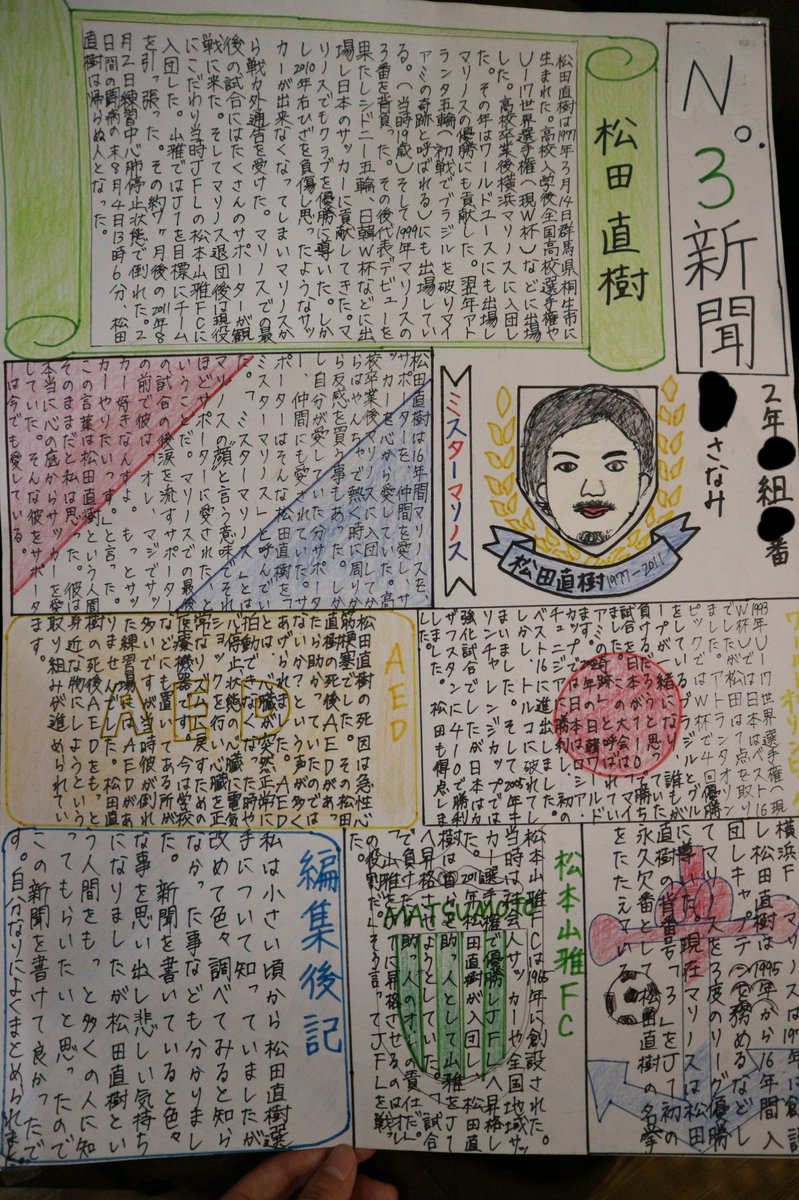 No.3新聞
2年 組 番
さなみ
松田 直樹
松田直樹は1977年3月14日群馬県桐生市に
生まれた。高校入学後全国高校選手権や
U-17世界選手権(現W杯)などに出場
した。高校卒業後横浜マリノスに入団し
た。その年はワールドユースにも出場し
マリノスの優勝にも貢献した。翌年アト
ランタ五輪(初戦でブラジルを破りマイ
アミの奇跡と呼ばれる)にも出場してい
る。(当時19歳)そして1999年マリノスの
3番を背負った。その後代表デビューを
果たしシドニー五輪、日韓W杯などに出
場し日本のサッカーに貢献してきた。マ
リノスでもクラブを優勝に導いた。しか
し2010年右ひざを負傷し思ったようなサッ
カーが出来なくなってしまいマリノスか
ら戦力外通告を受けた。マリノスでの最
後の試合にはたくさんのサポーターが観
戦に来た。そしてマリノス退団後は現役
にこだわり当時JFLの松本山雅FCに
入団した。山雅ではJ1を目標にチーム
を引っ張った。その約7ヶ月後の2011年8
月2日練習中心肺停止状態で倒れた。2
日間の闘病の末8月4日13時6分、松田
直樹は帰らぬ人となった。
松田直樹1977-2011
ミスターマリノス
松田直樹は16年間マリノスを、
サポーターを、仲間を愛し、サ
ッカーを心から愛していた。高
校卒業後マリノスに入団してか
らはやんちゃで熱く時に周りか
ら反感を買う事もあった。しか
し自分が愛していた分サポータ
ー、仲間にも愛されていた。サ
ポーターはそんな松田直樹を「
ミスターマリノス」と呼んでい
た。「ミスターマリノス」とは
マリノスの"顔"と言う意味でそれ
ほどサポーターに愛されたと
いうことだ。マリノスでの最後
の試合の後涙を流すサポーター
の前で彼は「オレ、マジでサッ
カー好きなんすよ。もっとサッ
カーやりたいっす。」と言った。
この言葉は松田直樹という人間
そのままだと私は思った。彼は
本当に心の底からサッカーを愛
していた。そんな彼をサポータ
ーは今でも愛している。
1993年U-17世界選手権(現
ました。アトランタオリン
ピックではW杯で4回優勝
をしているブラジルとグル
ープが一緒になり、誰もが
負けるだろうと思っていた
ベスト16に進出しました。
しかし、トルコに破れてし
まいました。そして2005年キ
リンチャレンジカップでは
強化試合でしたが日本はカ
ザフスタンに4-0で勝利
しました。松田も得点しま
AED
松田直樹の死因は急性心
筋梗塞でした。その松田
直樹の死後AEDがあっ
たら助かっていたのでは
ないか?という声が多く
あげられました。AED
とは、心臓が突然正常に
拍動できなくなった時や
心停止状態の心臓に電気
ショックを行い心臓を正
常なリズムに戻すための
医療機器です。今は学校
などにも置いてある所が
多いですが当時彼が倒れ
た練習場にはAEDがあ
りませんでした。松田直
樹の死後AEDをもっと
身近な物にしようという
取り組みが進められてい
ます。
AED
横浜F
し松田直樹は1995年から16年間入
団しキャプテンを務めるなどし
てマリノスを3度のリーグ優勝
に導いた。現在マリノスは松田
直樹の背番号「3」をJで初の
永久欠番として松田直樹の名誉
をたたえている
松本山雅FC
松本山雅FCは1965年に創設された。
当時は社会人サッカーや全国地域サッ
カー選手権で優勝しJFLへ昇格し
た。2011年松田直樹が入団し、松田直
樹は自らを助っ人として山雅をJで
へ昇格させようとしていた。「試合
で負けたのは助っ人のオレの責任だ。」
「山雅をJ2に昇格させるのはオレ
の役割だ。」そう言ってJFLを戦っ
MATSUMOTO
編集後記
私は小さい頃から松田直樹選
手について知っていましたが
改めて色々調べてみると知ら
なかった事なども分かりまし
た。新聞を書いていると色々
な事を思い出し悲しい気持ち
になりましたが松田直樹とい
う人間をもっと多くの人に知
ってもらいたいと思ったので
この新聞を書けて良かったで
す。自分なりによくまとめられまし